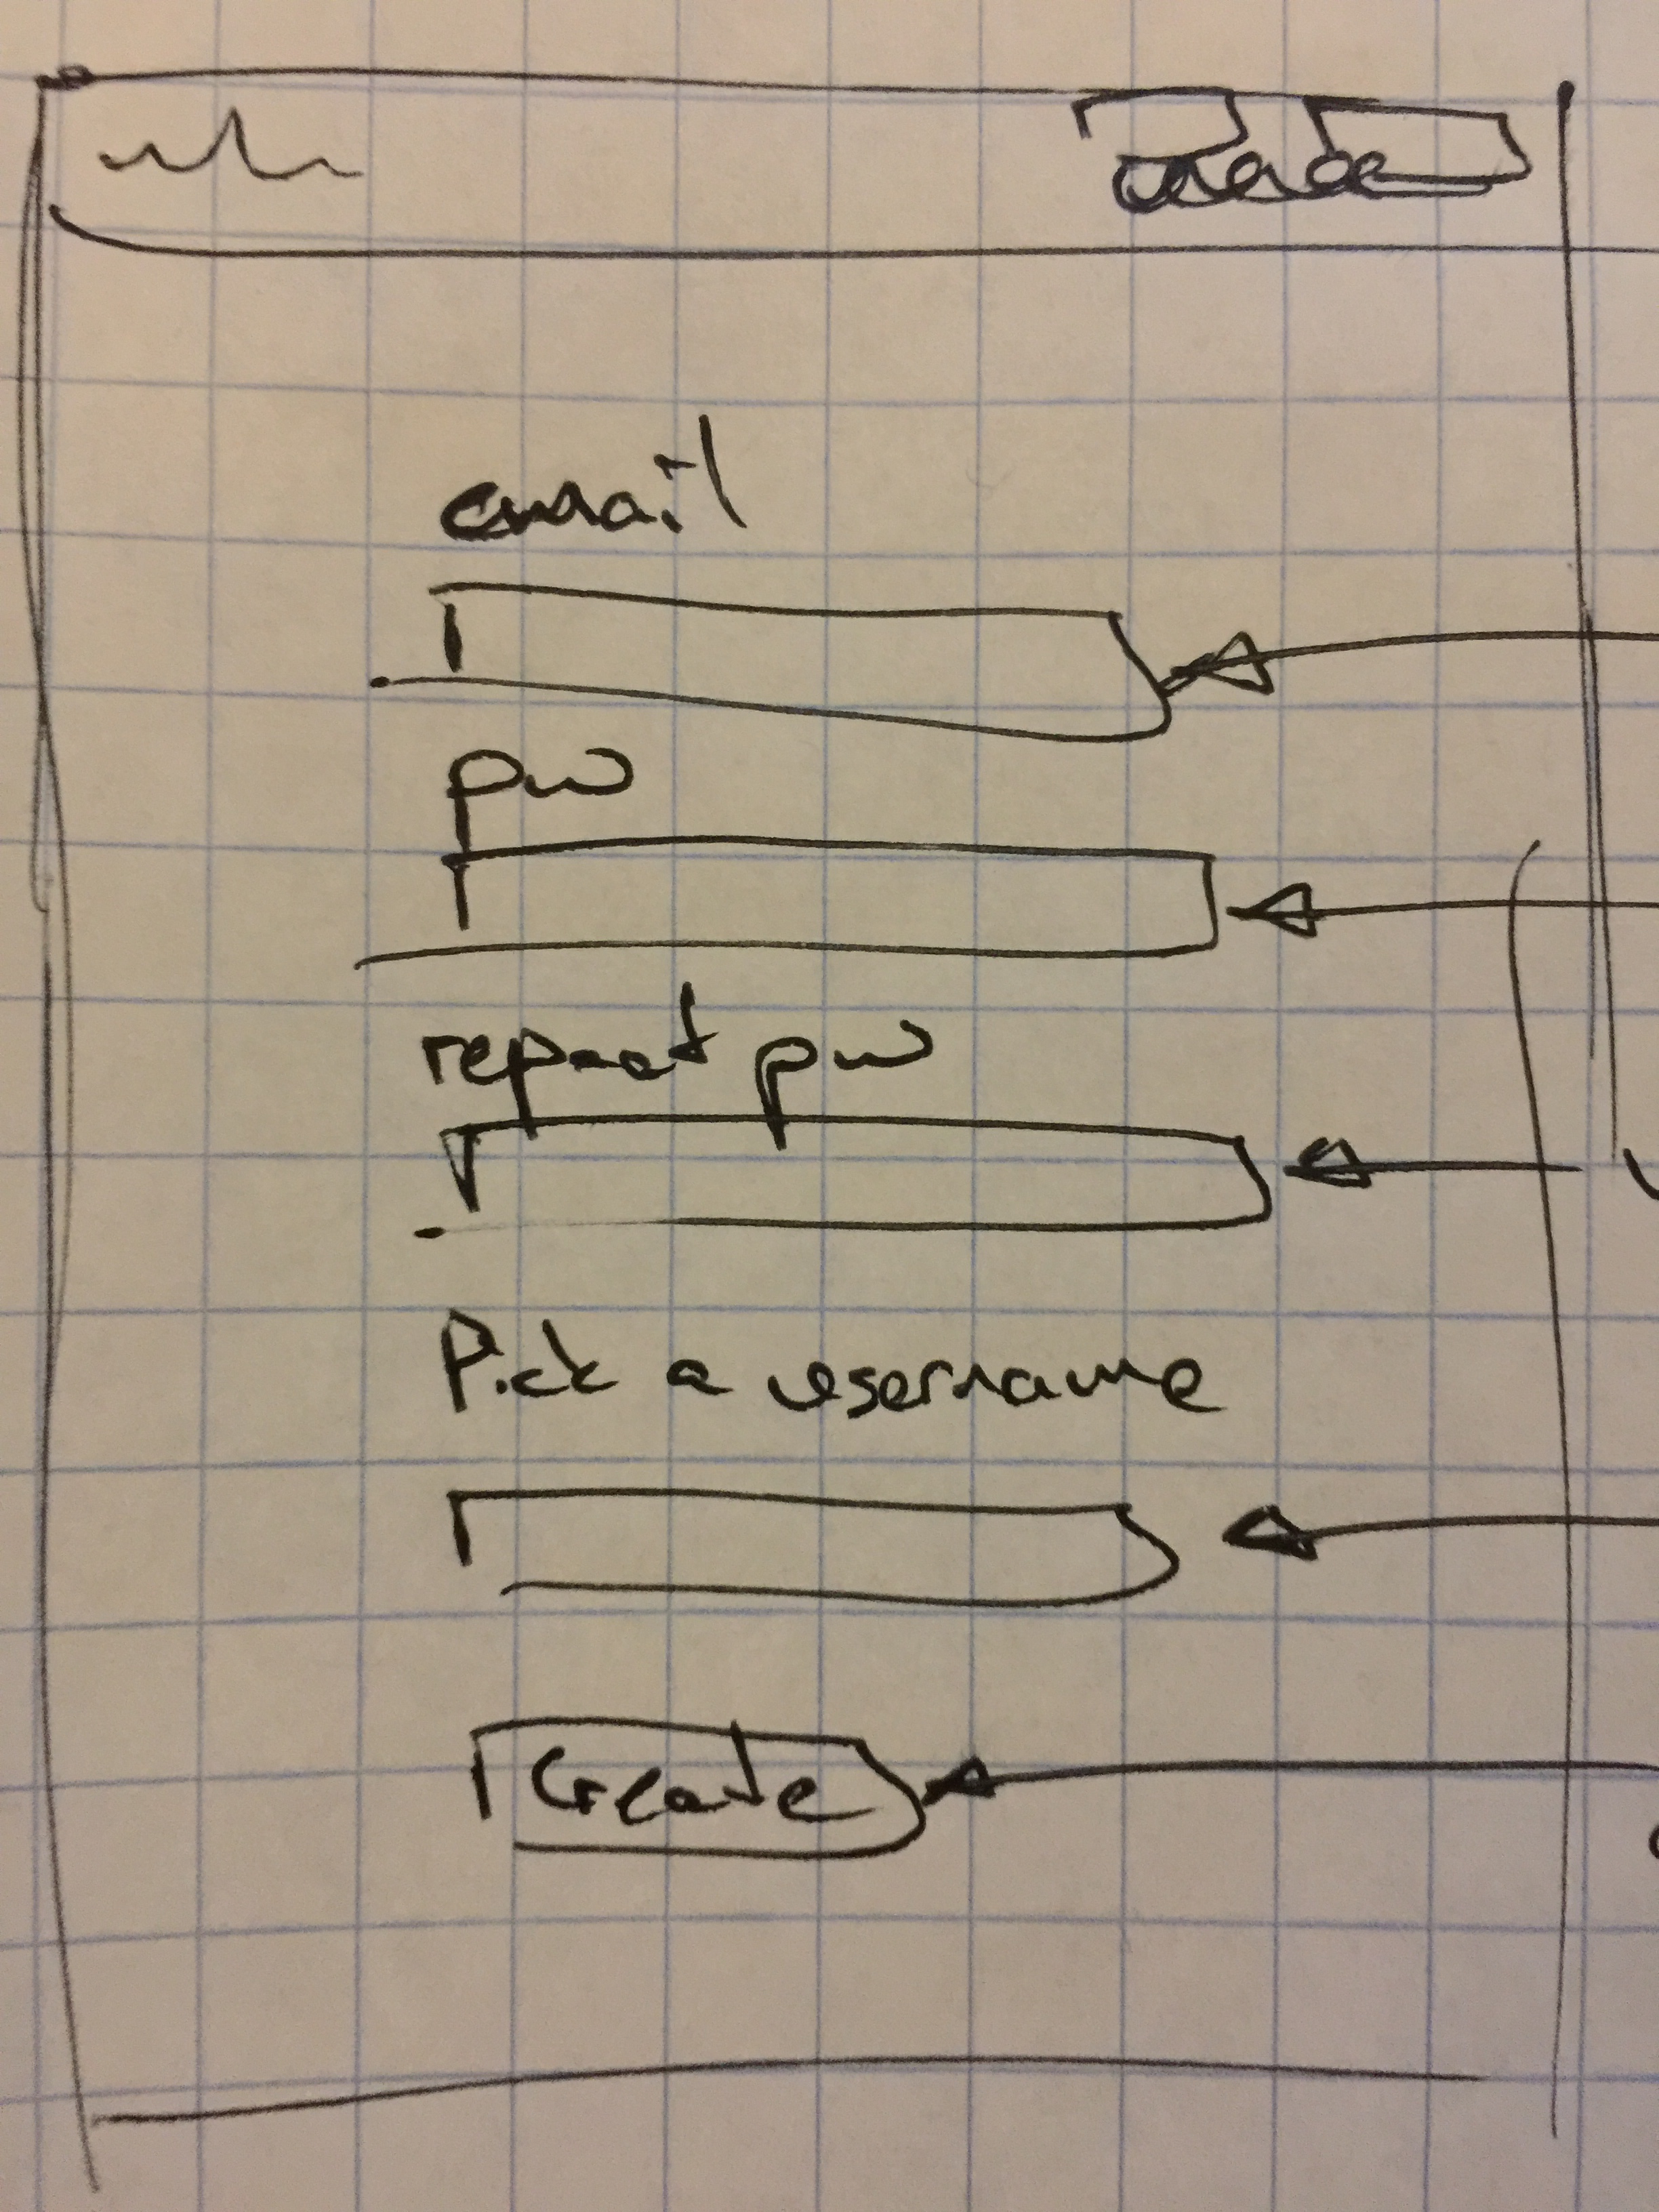 email
pw
repeat pw
Pick a username
Create